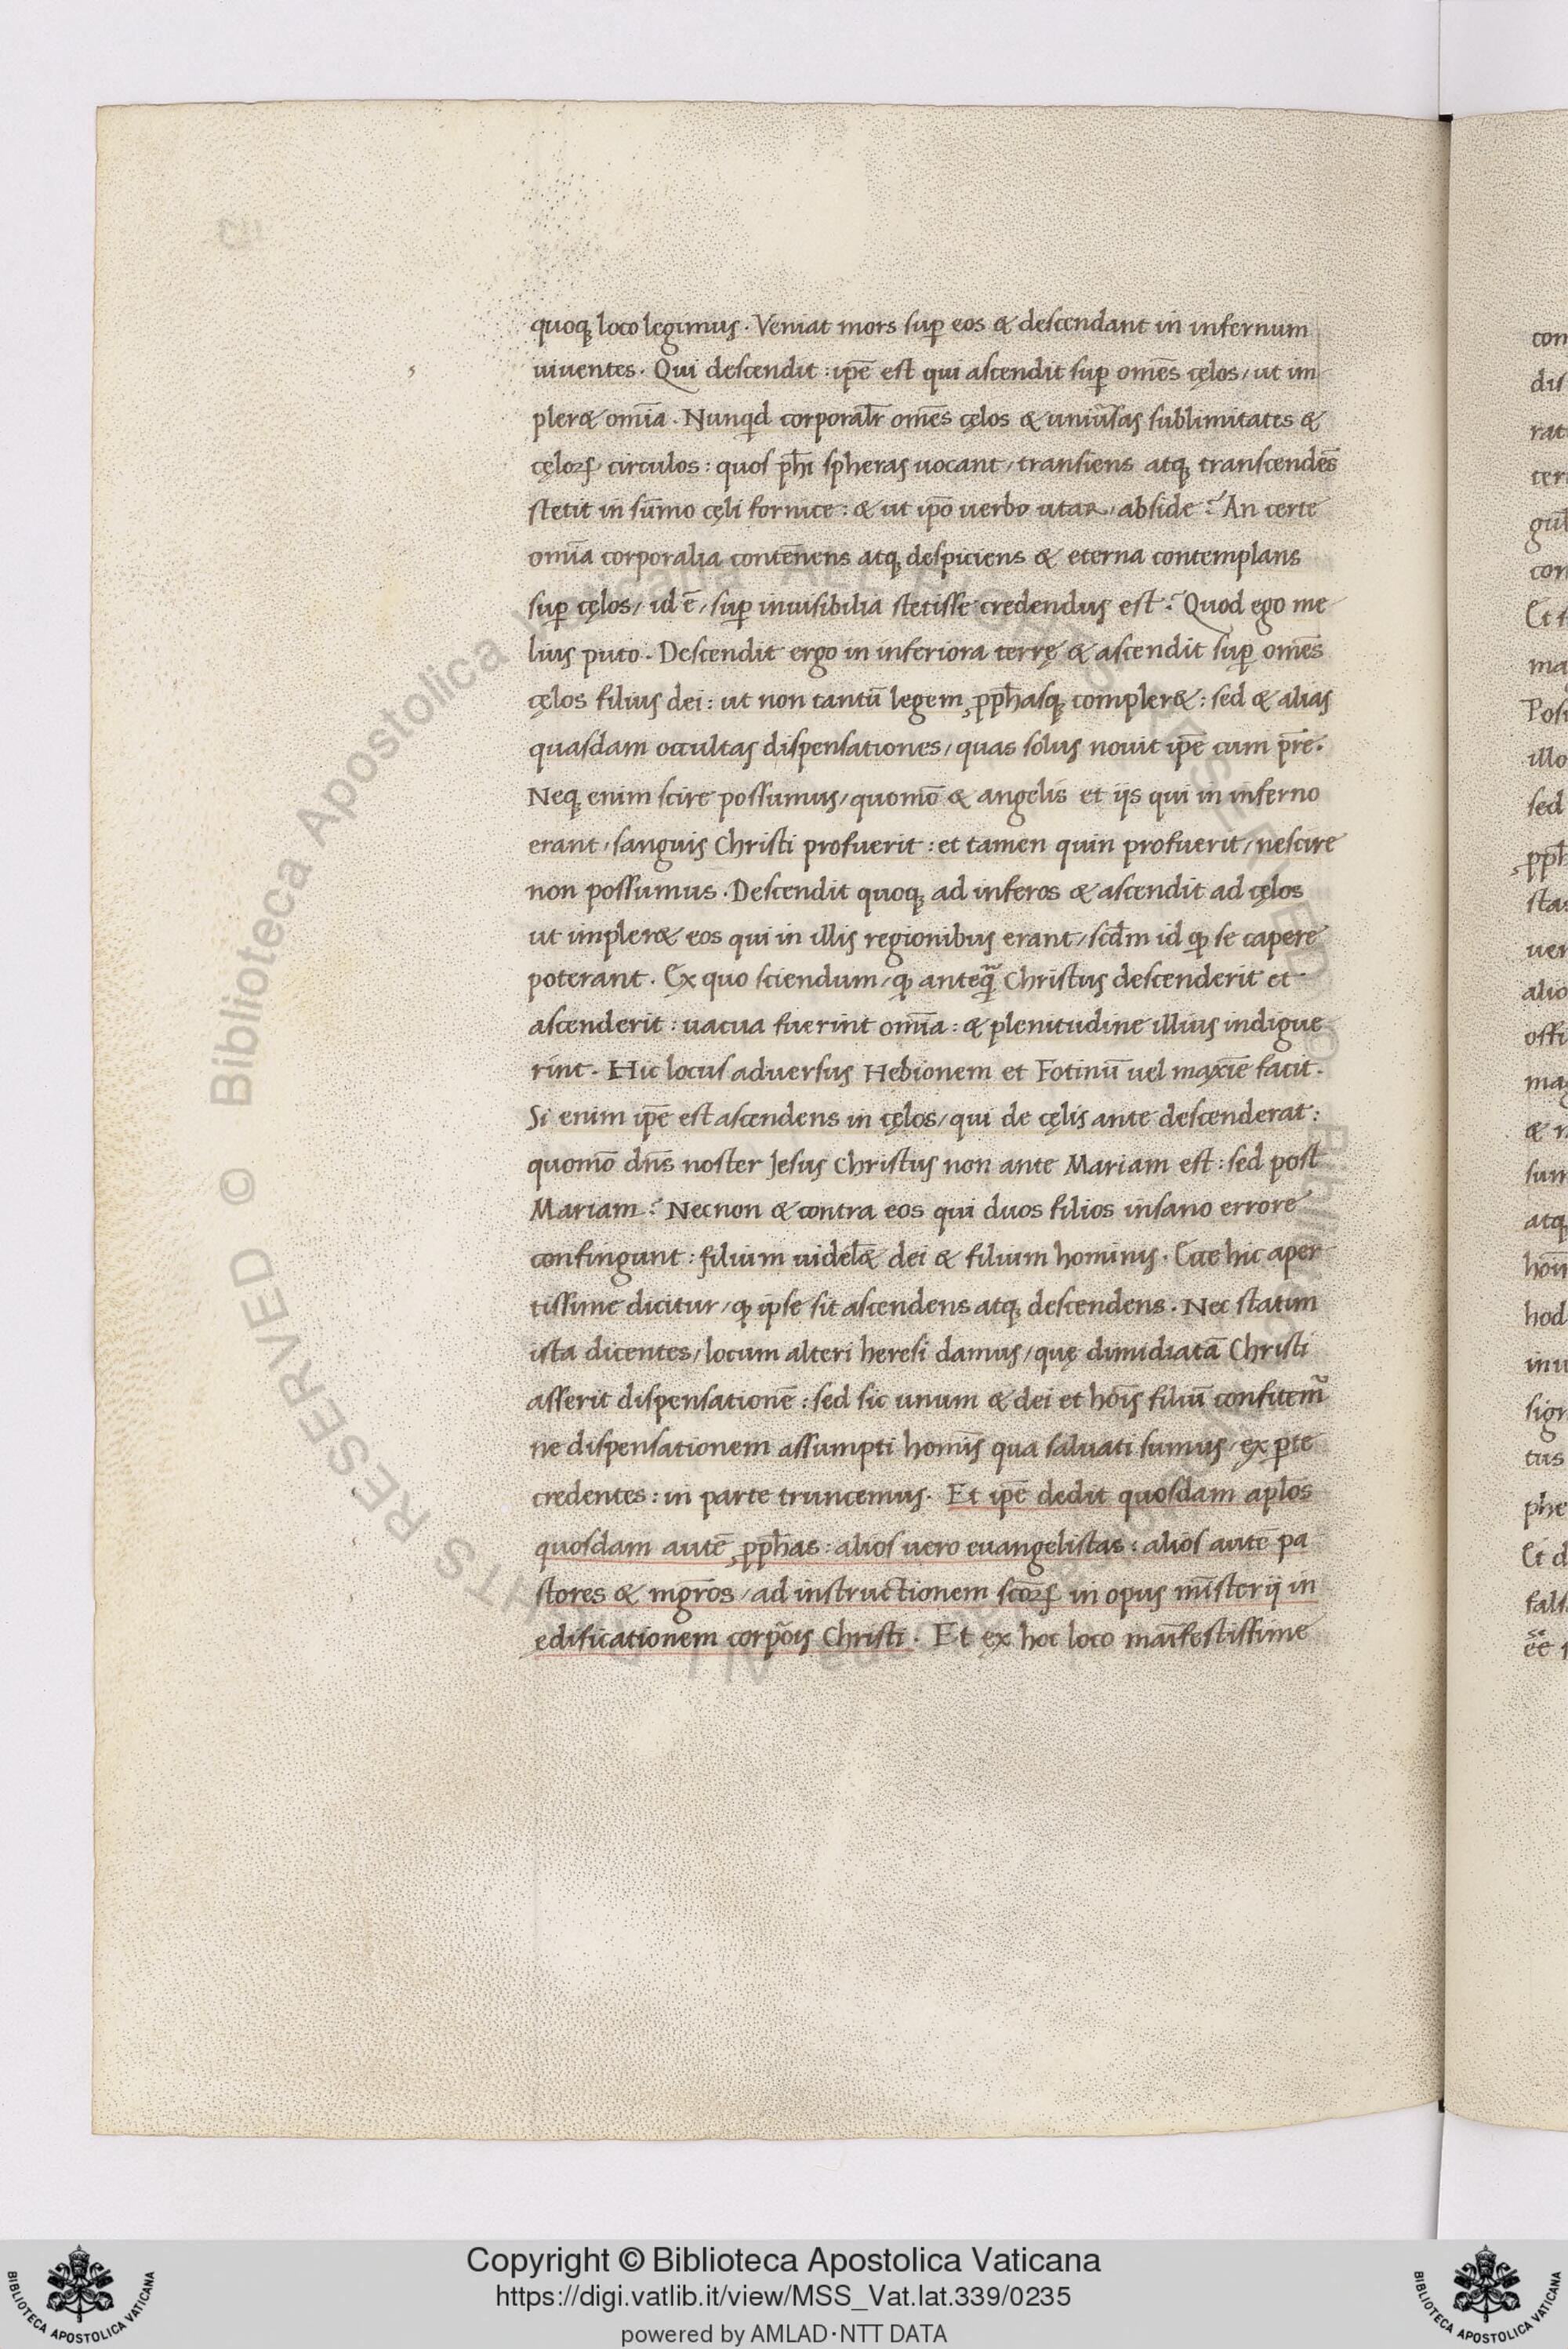 quoq; loco legimus. Veniat mors sup̲ eos & descendant in infernum
uiuentes. Qui descendit: ip̄e est qui ascendit sup̲ om̄es cęlos/ ut im
pler& om̄ia. Nunq̇d corporal̄r om̄es cęlos & uniũsas sublimitates &
cęloꝝ circulos: quos ph̄i spheras uocant/ transiens atq; transcendēs
stetit in sūmo cęli fornice: & ut ip̄o uerbo utar, abside? An certe
om̄ia corporalia contēnens atq; despiciens & eterna contemplans
sup̲ cęlos/ id ē, sup̲ inuisibilia stetisse credendus est? Quod ego me
lius puto. Descendit ergo in inferiora terrę & ascendit sup̲ om̄es
cęlos filius dei: ut non tantū legem ꝓph̄asq; compler&: sed & alias
quasdam occultas dispensationes/ quas solus nouit ip̄e cum pr̄e.
Neq; enim scire possumus/ quomō & angelis et ijs qui in inferno
erant, sanguis Christi profuerit: et tamen quin profuerit/ nescire
non possumus. Descendit quoq; ad inferos & ascendit ad cęlos
ut impler& eos qui in illis regionibus erant/ scd̄m id ꝙ se capere
poterant. Ex quo sciendum/ ꝙ anteq̃ Christus descenderit et
ascenderit: uacua fuerint om̄ia: & plenitudine illius indigue
rint. Hic locus aduersus Hebionem et Fotinū uel maxīe facit.
Si enim ip̄e est ascendens in cęlos/ qui de cęlis ante descenderat:
quomō dn̄s noster Jesus Christus non ante Mariam est: sed post
Mariam? Necnon & contra eos qui duos filios insano errore
confingunt: filium uidel& dei & filium hominis. Cue hic aper
tissime dicitur/ ꝙ ipse sit ascendens atq; descendens. Nec statim
ista dicentes/ locum alteri heresi damus/ quę dimidiatā Christi
asserit dispensationē: sed sic unum & dei et hoīs filiū confitem̃
ne dispensationem assumpti homīs qua saluati sumus/ ex p̲te
credentes: in parte truncemus. Et ip̄e dedit quosdam apl̄os
quosdam autē ꝓph̄as: alios uero euangelistas: alios autē pa
stores & mgr̄os/ ad instructionem scōꝝ in opus mīsterij in
edificationem corpōis Christi. Et ex hoc loco maīfestissime
con
dis
rat
cer
con
ma
Pos
illo
sed
uer
alio
offi
ma
sum
atq;
hod
inu
sig
tus
phe
fals
© Biblioteca Apostolica Vaticana
Copyright © Biblioteca Apostolica Vaticana
https://digi.vatlib.it/view/MSS_Vat.lat.339/0235
powered by AMLAD·NTT DATA
BIBLIOTECA APOSTOLICA VATICANA
BIBLIOTECA APOSTOLICA VATICANA